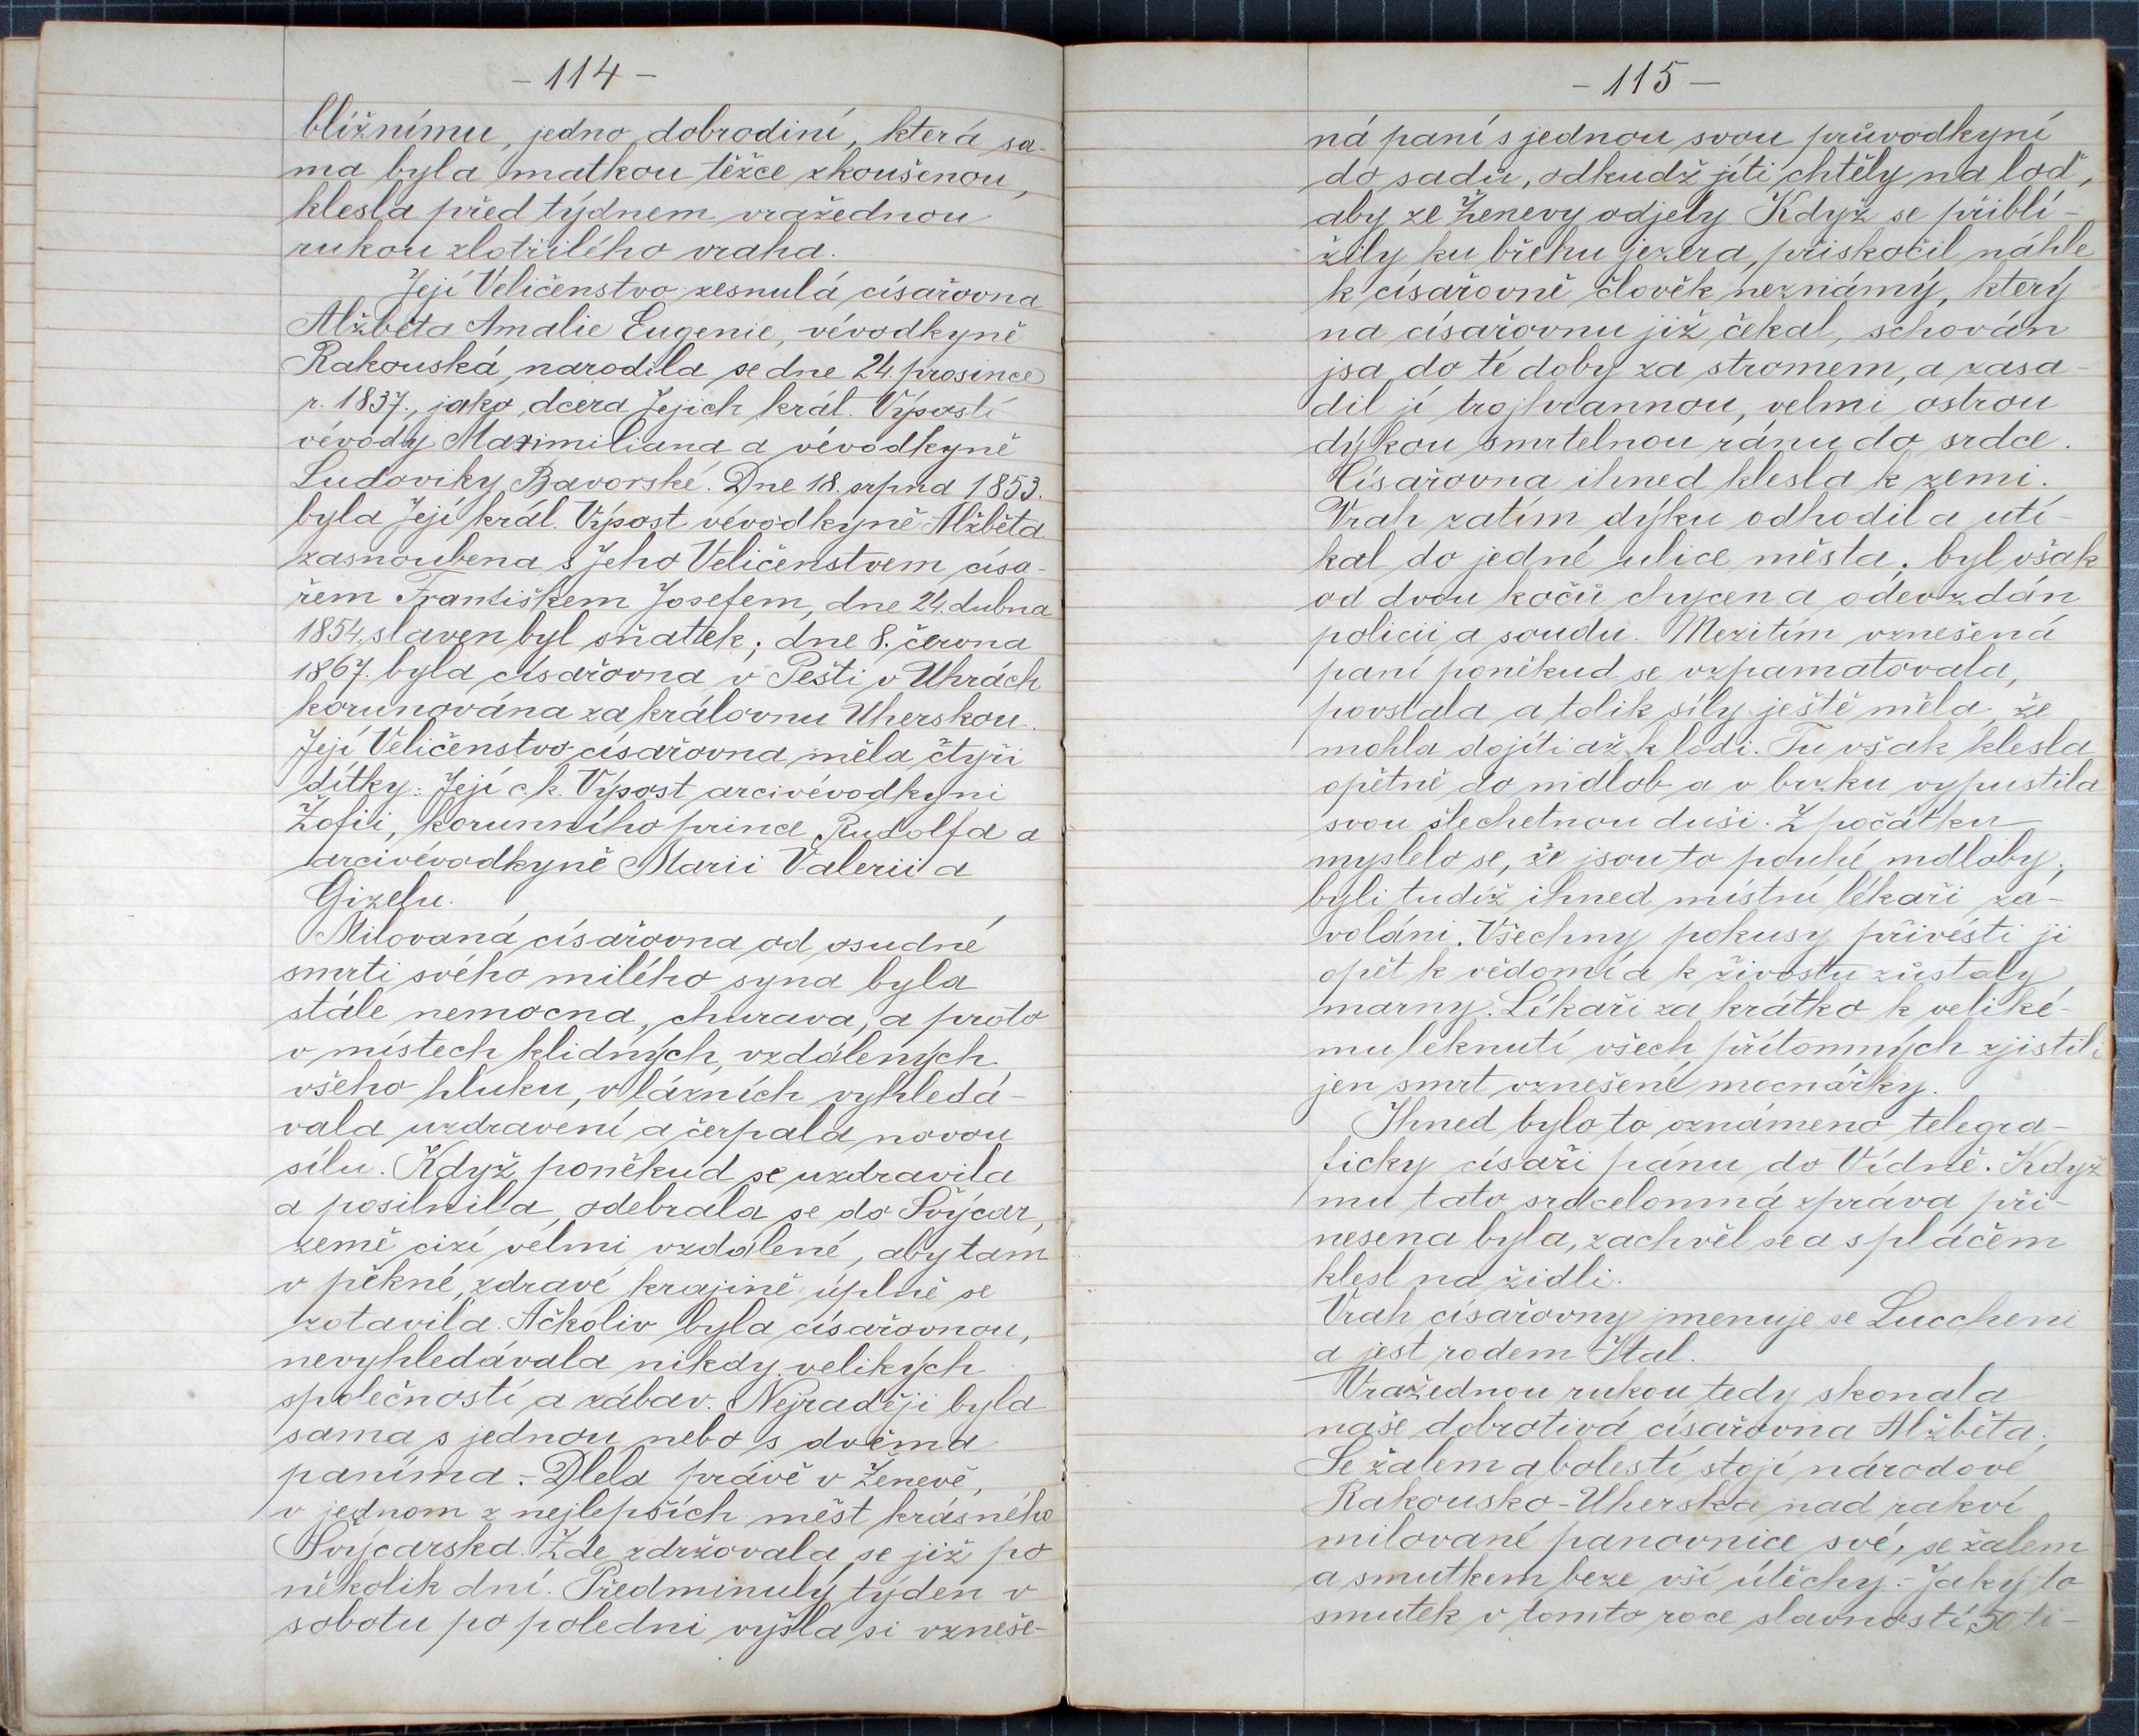 - 114 -
bližnímu, jedno dobrodiní, která sa-
ma byla matkou těžce zkoušenou,
klesla před týdnem vražednou
rukou zlotřilého vraha.
Její Veličenstvo zesnulá císařovna
Alžběta Amalie Eugenie, vévodkyně
Rakouská, narodila se dne 24. prosince
r. 1837., jako dcera Jejich král. Výsostí
vévody Maximiliana a vévodkyně
Ludoviky Bavorské. Dne 18. srpna 1853.
byla Její král. Výsost vévodkyně Alžběta
zasnoubena s Jeho Veličenstvem císa-
řem Františkem Josefem, dne 24. dubna
1854. slaven byl sňattek; dne 8. června
1867. byla císařovna v Pešti v Uhrách
korunována za královnu Uherskou.
Její Veličenstvo císařovna měla čtyři
dítky: Její c. k. Výsost arcivévodkyni
Žofii, korunního prince Rudolfa a
arcivévodkyně Marii Valerii a
Gizelu.
Milovaná císařovna od osudné
smrti svého milého syna byla
stále nemocna, churava, a proto
v místech klidných, vzdálených
všeho hluku, v lázních vyhledá-
vala uzdravení a čerpala novou
sílu. Když poněkud se uzdravila
a posilnila, odebrala se do Švýcar,
země cizí velmi vzdálené, aby tam
v pěkné, zdravé krajině úplně se
zotavila. Ačkoliv byla císařovnou,
nevyhledávala nikdy velikých
společností a zábav. Nejraději byla
sama s jednou nebo s dvěma
paníma. - Dlela právě v Ženevě,
v jednom z nejlepších měst krásného
Švýcarska. Zde zdržovala se již po
několik dní. Předminulý týden v
sobotu po poledni vyšla si vzneše-
- 115 -
ná paní s jednou svou průvodkyní
do sadů, odkudž jíti chtěly na loď,
aby ze Ženevy odjely. Když se přiblí-
žily ku břehu jezera, přiskočil náhle
k císařovně člověk neznámý, který
na císařovnu již čekal, schován
jsa do té doby za stromem, a zasa-
dil jí trojhrannou, velmi ostrou
dýkou smrtelnou ránu do srdce.
Císařovna ihned klesla k zemi.
Vrah zatím dýku odhodil a utí-
kal do jedné ulice města; byl však
od dvou kočů chycen a odevzdán
policii a soudu. Mezitím vznešená
paní poněkud se vzpamatovala,
povstala a tolik síly ještě měla, že
mohla dojíti až k lodi. Tu však klesla
opětně do mdlob a v brzku vypustila
svou šlechetnou duši. Z počátku
myslelo se, že jsou to pouhé mdloby;
byli tudíž ihned místní lékaři za-
voláni. Všechny pokusy přivésti ji
opět k vědomí a k životu zůstaly
marny. Lékaři za krátko k veliké-
mu leknutí všech přítomných zjistili
jen smrt vznešené mocnářky.
Ihned bylo to oznámeno telegra-
ficky císaři pánu do Vídně. Když
mu tato srdcelomná zpráva při-
nesena byla, zachvěl se a s pláčem
klesl na židli.
Vrah císařovny jmenuje se Luccheni
a jest rodem Ital.
Vražednou rukou tedy skonala
naše dobrotivá císařovna Alžběta.
Se žalem a bolestí stojí národové
Rakousko-Uherska nad rakví
milované panovnice své, se žalem
a smutkem beze vší útěchy. - Jaký to
smutek v tomto roce slavností 50 ti-